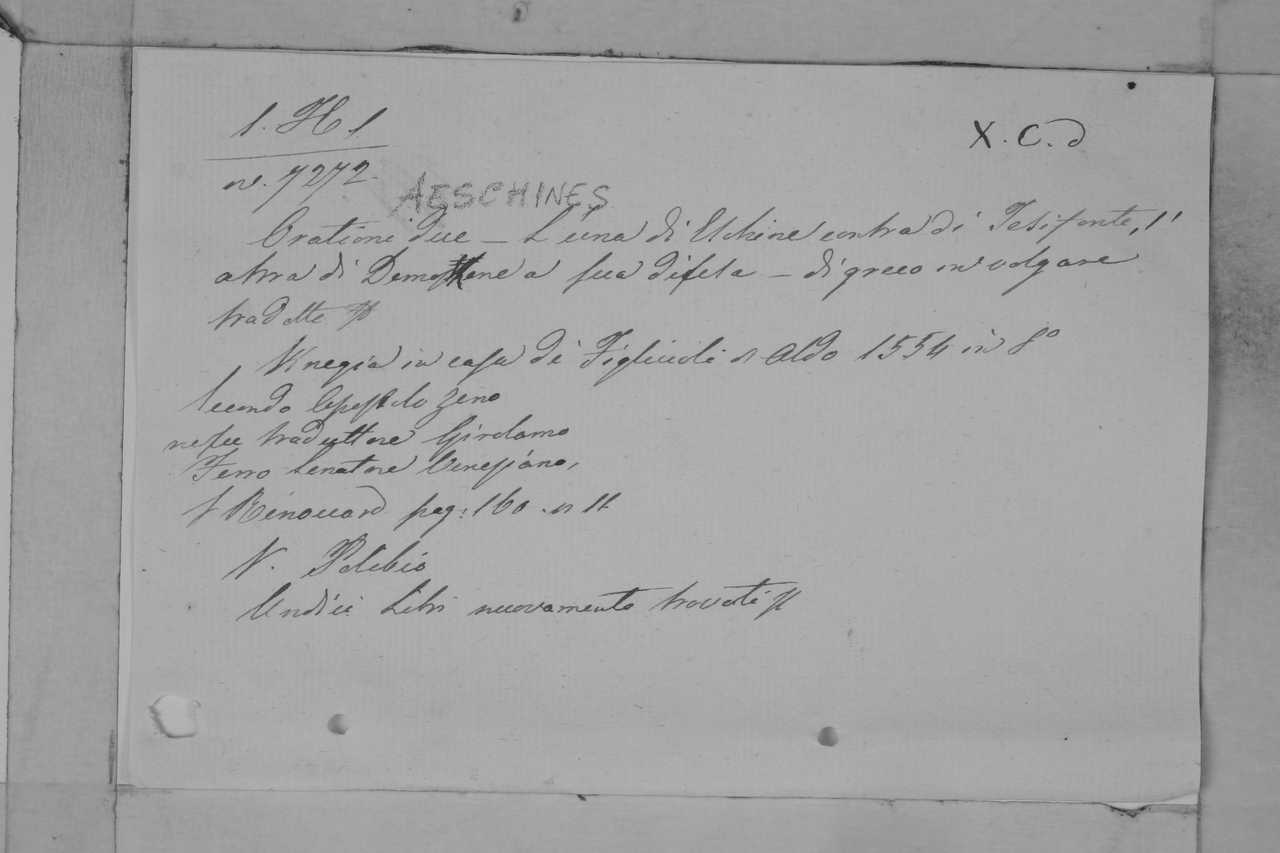 1. H 1
X. C. d
n. 7272.
AESCHINES
Orationi due – L'una di Eschine contra di Tesifonte, l'
altra di Demosthene a sua difesa – di greco in volgare
tradotte
Vinegia in casa di Figliuoli di Aldo 1554 in 8º
secondo Apostolo Zeno
ne fu traduttore Girolamo
Ferro Senatore Veneziano,
V Renouard pag: 160 n 11
V. Polibio
Undici Libri nuovamente trovati